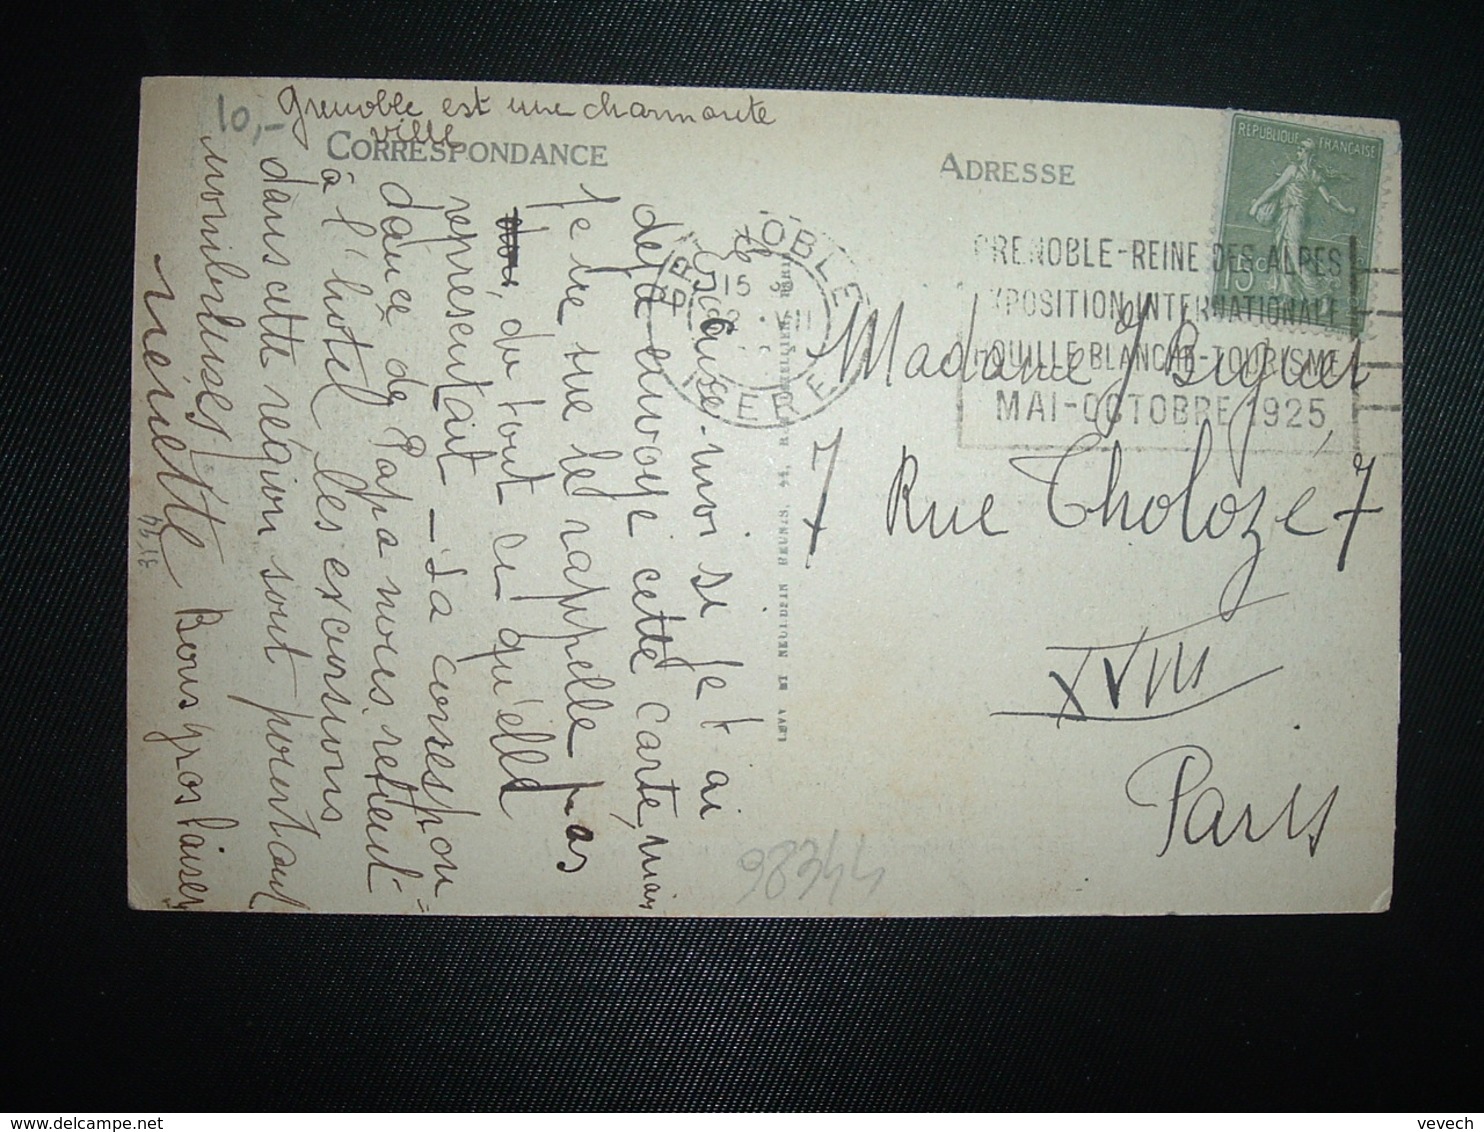 10,-
Grenoble est une charmante
ville
CORRESPONDANCE
Excuse-moi si je t'ai
déjà envoyé cette carte, mais
je ne me le rappelle pas
du tout ce qu'elle
représentait - La correspon=
dance de Papa nous retient
à l'hotel les excursions
dans cette région sont pourtant
nombreuses
Bons gros baisers
Ninette
ADRESSE
REPUBLIQUE FRANÇAISE
15c
GRENOBLE
15
ISERE
GRENOBLE-REINE DES ALPES
EXPOSITION INTERNATIONALE
HOUILLE BLANCHE-TOURISME
MAI-OCTOBRE 1925
Madame J Biguet
7 Rue Tholozé 7
XVIII
Paris
LEVY ET NEURDEIN REUNIS, 44,
98344
vevech